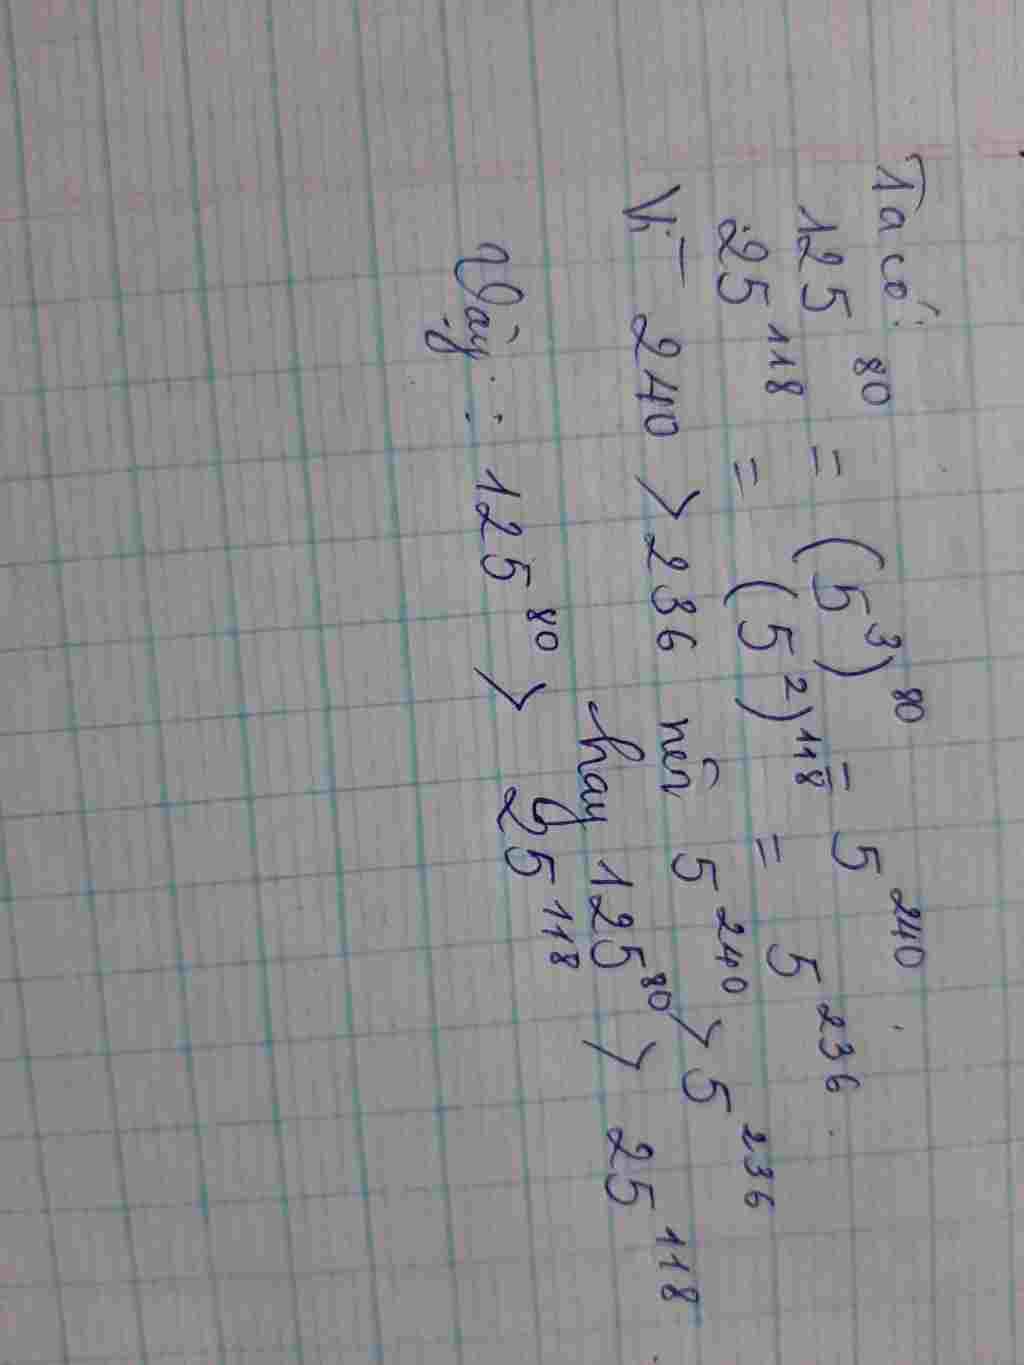 Ta có:
125^80 = (5^3)^80 = 5^240
25^118 = (5^2)^118 = 5^236
Vì 240 > 236 nên 5^240 > 5^236
hay 125^80 > 25^118
Vậy: 125^80 > 25^118